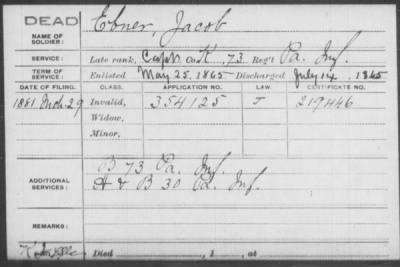 DEAD
Ebner, Jacob
NAME OF SOLDIER:
SERVICE: Late rank, Capt. Co. K, 73 Reg't Pa. Inf.
TERM OF SERVICE: Enlisted May 25, 1865 Discharged July 14, 1865
DATE OF FILING. CLASS. APPLICATION NO. LAW. CERTIFICATE NO.
1881 Mch 29 Invalid, 354125 J 219446
Widow,
Minor,
B 73 Pa. Inf.
ADDITIONAL SERVICES: H & B 30 Pa. Inf.
REMARKS:
Died , 1 , at